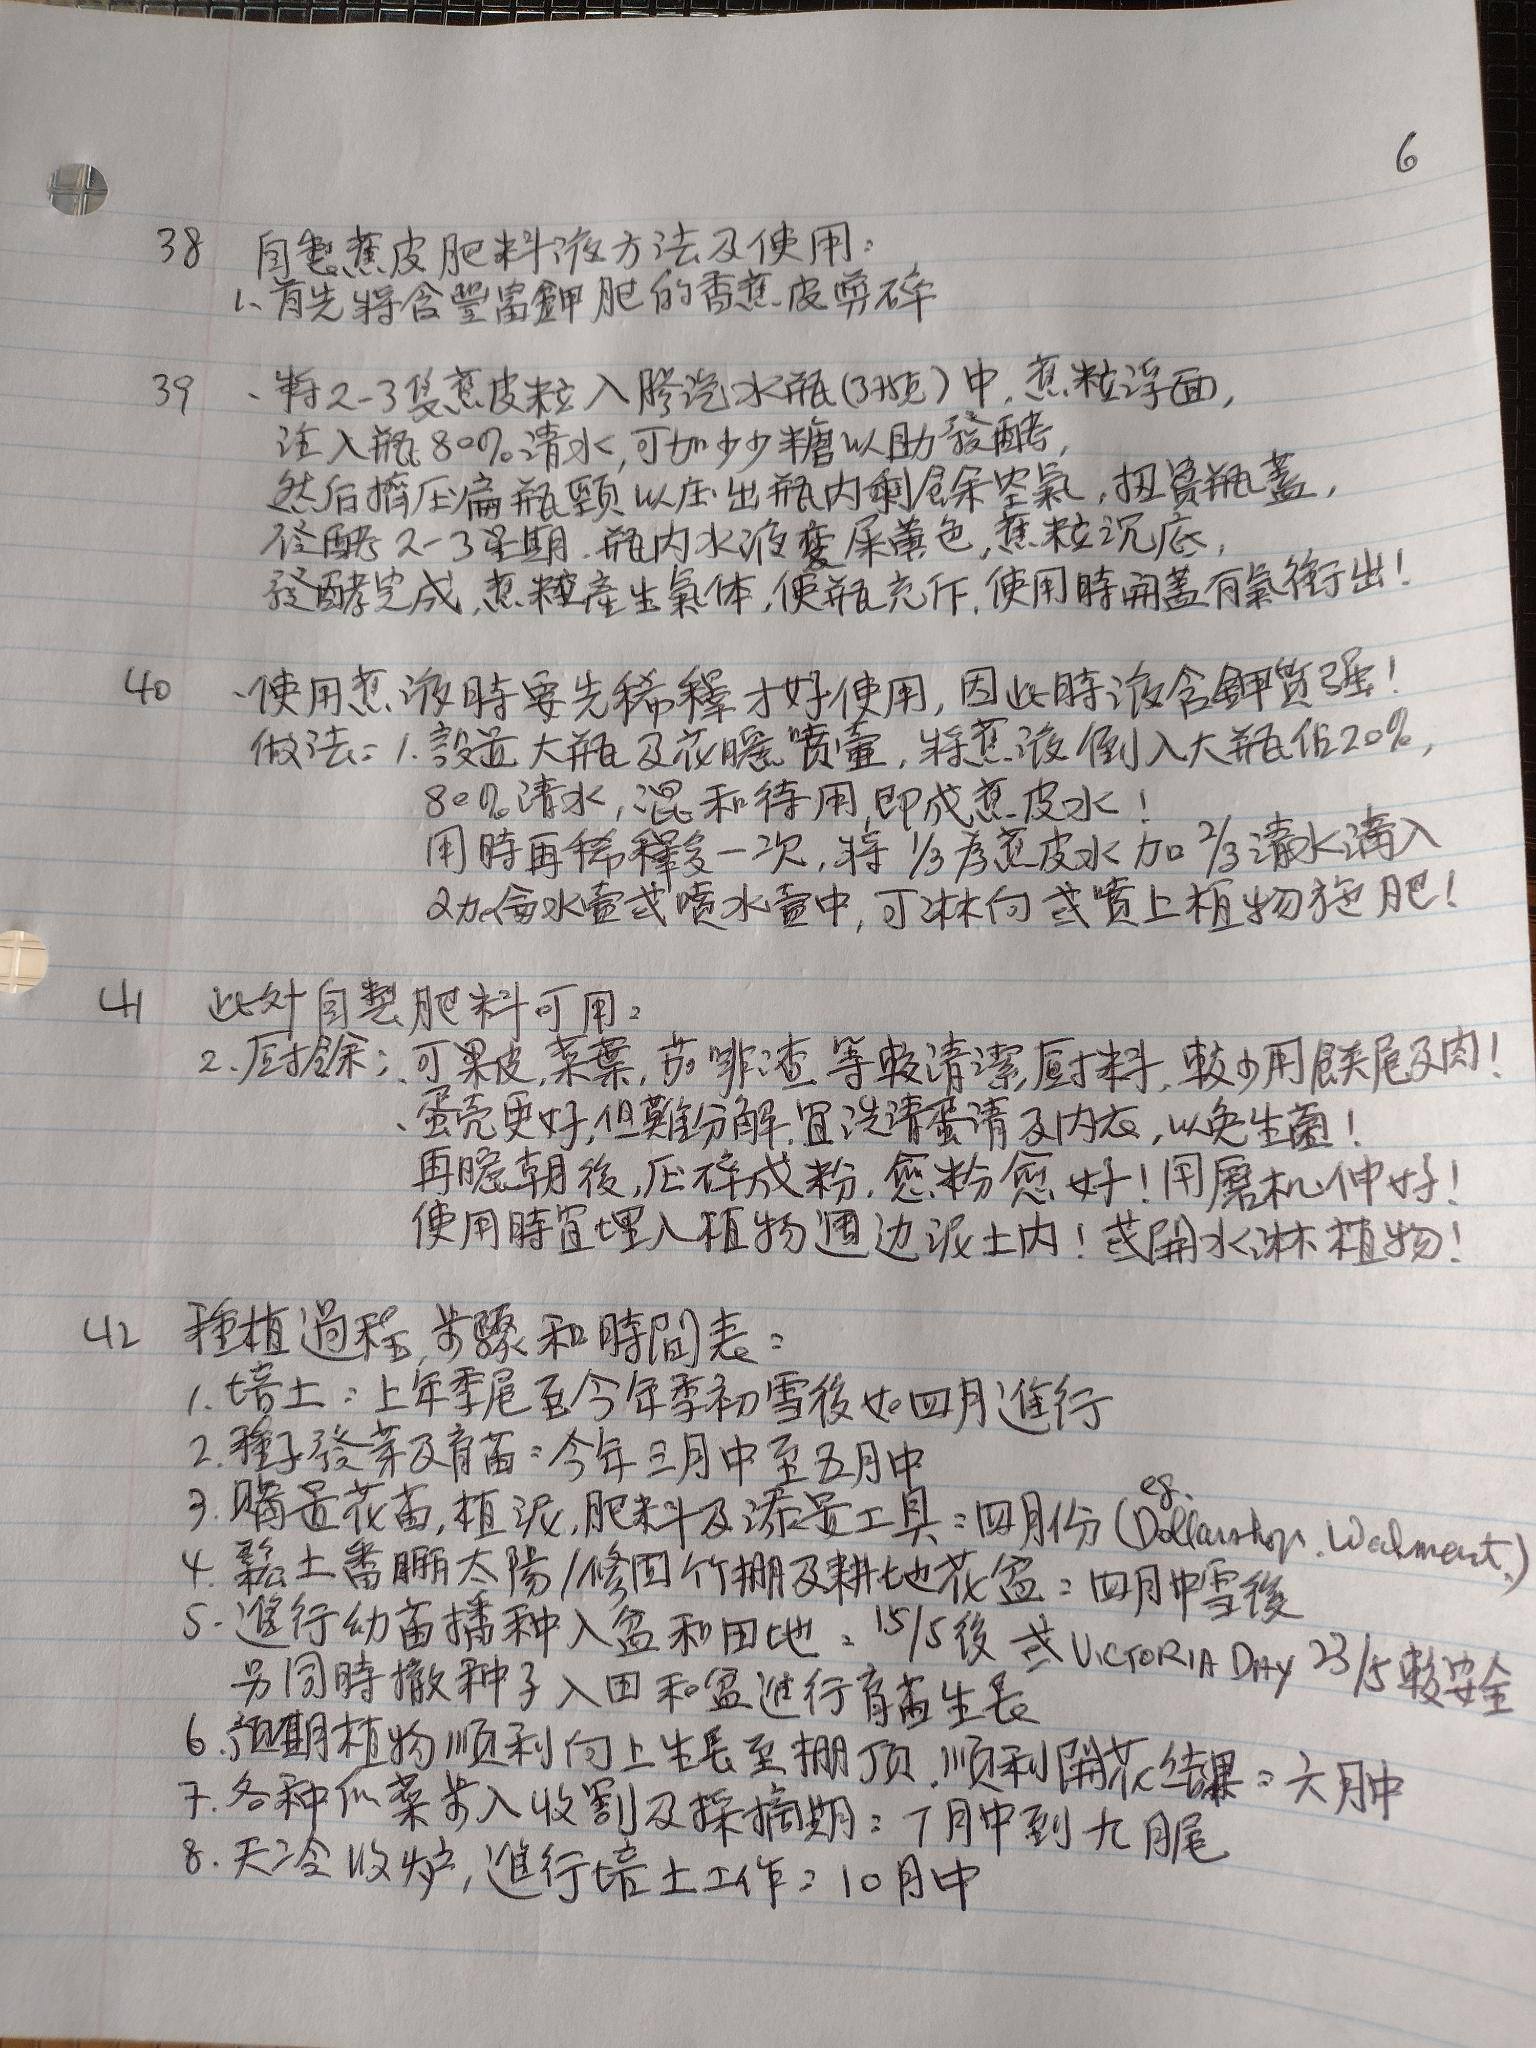 6
38 自製蕉皮肥料液方法及使用:
1、首先將含豐富鉀肥的香蕉皮剪碎
39 、將2-3隻蕉皮粒入膠汽水瓶(375克)中,蕉粒浮面,
注入瓶80%清水,可加少少糖以助發酵,
然后擠压扁瓶頸以压出瓶内剩餘空氣,扭實瓶蓋,
發酵2-3星期.瓶内水液變屎黄色,蕉粒沉底,
發酵完成,蕉粒產生氣体,使瓶充斥,使用時開蓋有氣衝出!
40 、使用蕉液時要先稀釋才好使用,因此時液含鉀質强!
做法:1.設置大瓶及花曬噴壷,將蕉液倒入大瓶佔20%,
80%清水,混和待用,即成蕉皮水!
用時再稀釋多一次,將1/3為蕉皮水加2/3清水满入
2加侖水壷或噴水壷中,可淋向或噴上植物施肥!
41 此外自製肥料可用:
2.厨餘:、可果皮,菜葉,茄啡渣等較清潔厨料,較少用餸尾及肉!
、蛋壳更好,但難分解,宜洗清蛋清及内衣,以免生菌!
再曬朝後,压碎成粉,愈粉愈好!用磨机伸好!
使用時宜埋入植物週边泥土内!或開水淋植物!
42 種植過程,步驟和時間表:
1.培土:上年季尾至今年季初雪後如四月進行
2.種子發芽及育苗:今年三月中至五月中
3.購置花苗,植泥,肥料及添置工具:四月份(eg. Dollarshop. Walmart.)
4.鬆土番曬太陽/修固竹棚及耕地花盆:四月中雪後
5.進行幼苗播种入盆和田地:15/5後或VICTORIA DAY 23/5較安全
另同時撒种子入田和盆進行育苗生長
6.預期植物順利向上生長至棚頂.順利開花結果:六月中
7.各种瓜菜步入收割及採摘期:7月中到九月尾
8.天冷收炉,進行培土工作:10月中